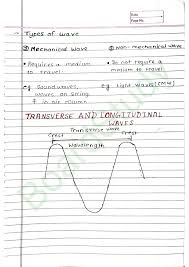 Date
Page No.
Types of wave
① Mechanical Wave
② Non-mechanical wave
• Requires a medium to travel.
• Do not require a medium to travel.
eg Soundwaves, waves on string & in air column
eg Light Waves (EMW)
TRANSVERSE AND LONGITUDINAL WAVES
Transverse wave
Crest
Crest
Wavelength